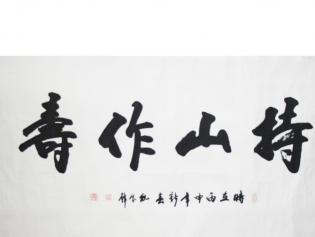 持山作壽
時在丙申年新春